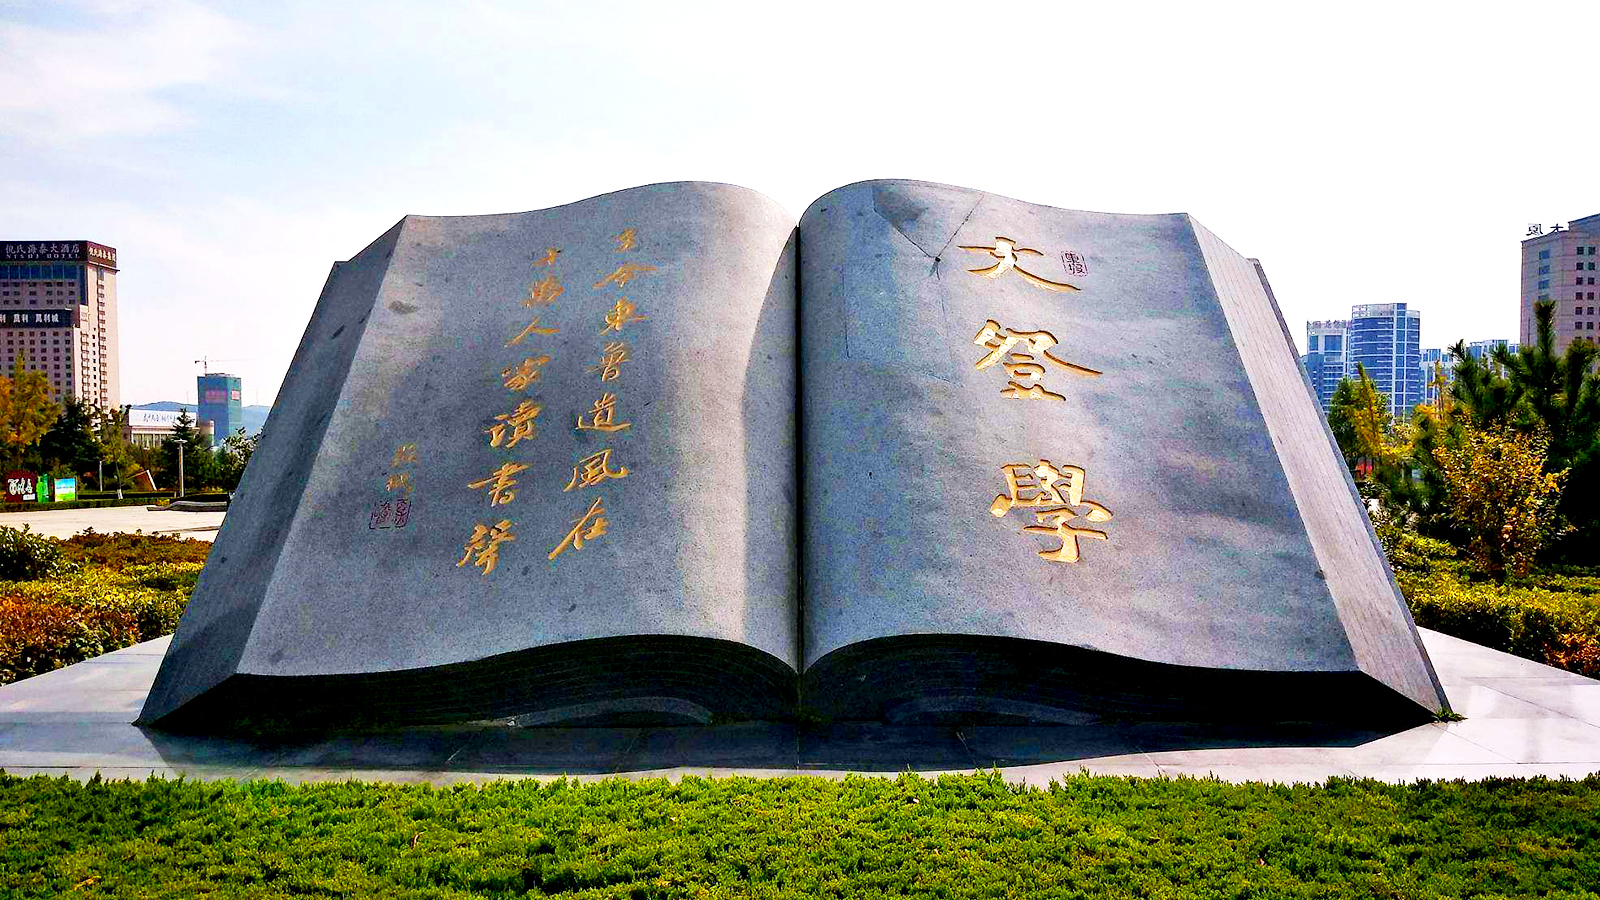 文登學
至今東魯遺風在
十萬人家讀書聲
倪氏海泰大酒店
NISHI HOTEL
大厦